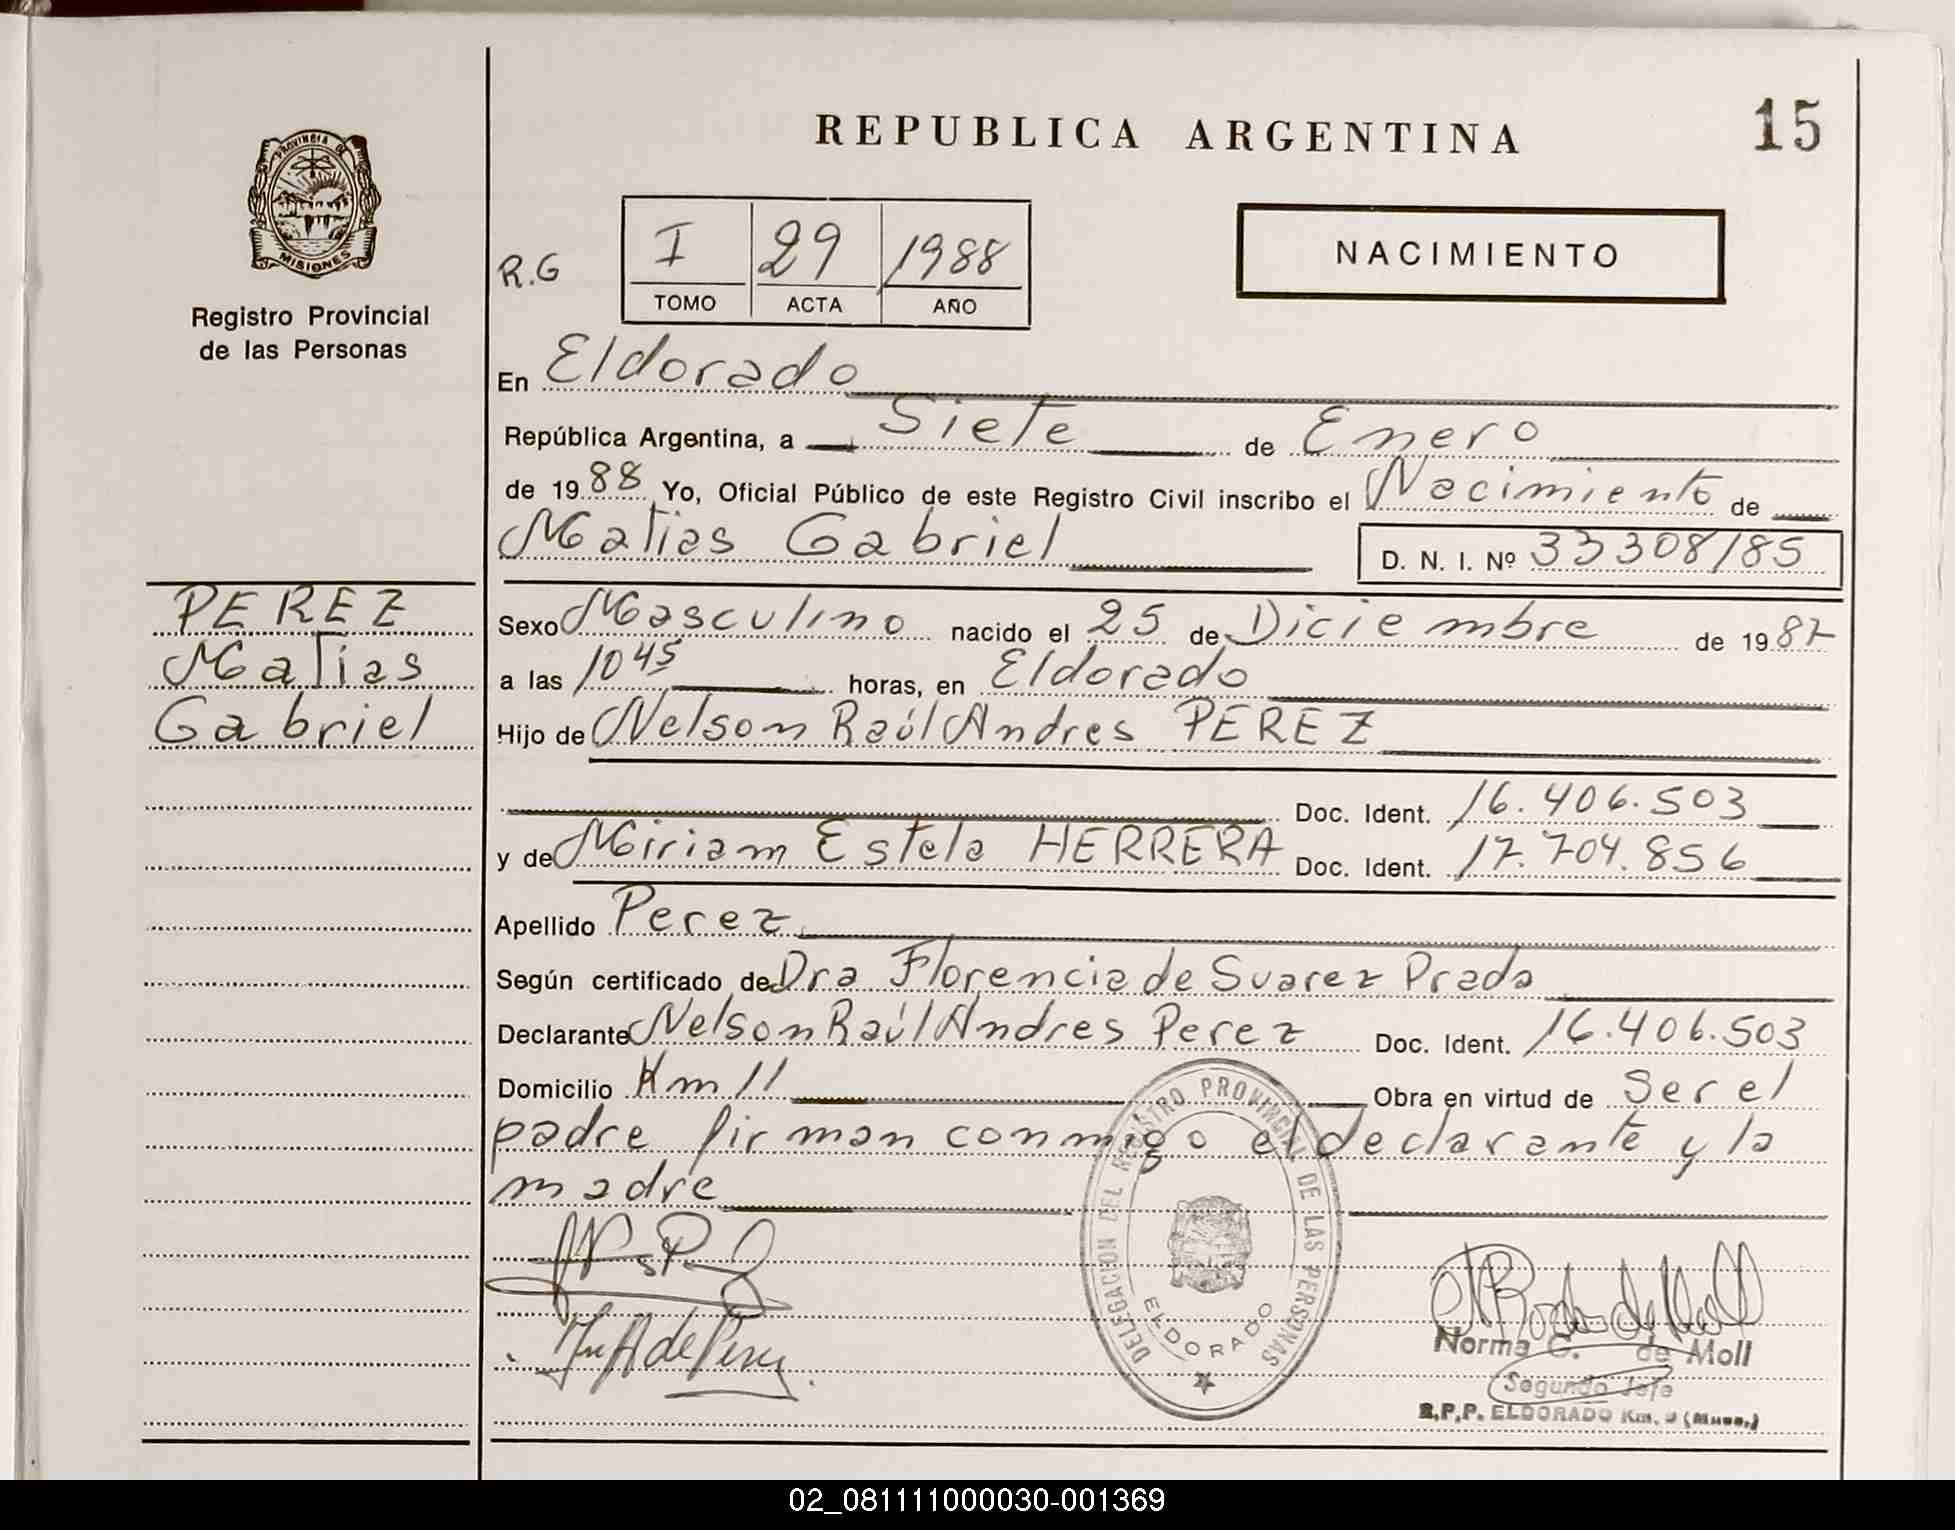 REPUBLICA ARGENTINA
15
PROVINCIA DE
MISIONES
Registro Provincial
de las Personas
R.G
I 29 1988
TOMO ACTA AÑO
NACIMIENTO
En Eldorado
República Argentina, a Siete de Enero
de 1988 Yo, Oficial Público de este Registro Civil inscribo el Nacimiento de
Matias Gabriel D. N. I. Nº 33308185
PEREZ
Matias
Gabriel
Sexo Masculino nacido el 25 de Diciembre de 1987
a las 10 45 horas, en Eldorado
Hijo de Nelson Raúl Andres PEREZ
Doc. Ident. 16.406.503
y de Miriam Estela HERRERA Doc. Ident. 17.704.856
Apellido Perez
Según certificado de Dra Florencia de Suarez Prada
Declarante Nelson Raúl Andres Perez Doc. Ident. 16.406.503
Domicilio Km 11 Obra en virtud de Ser el
padre firman conmigo el declarante y la
madre
DELEGACION DEL REGISTRO PROVINCIAL DE LAS PERSONAS
ELDORADO
de Perez
Norma C. de Moll
Segundo Jefe
R.P.P. ELDORADO Km. 9
02_081111000030-001369